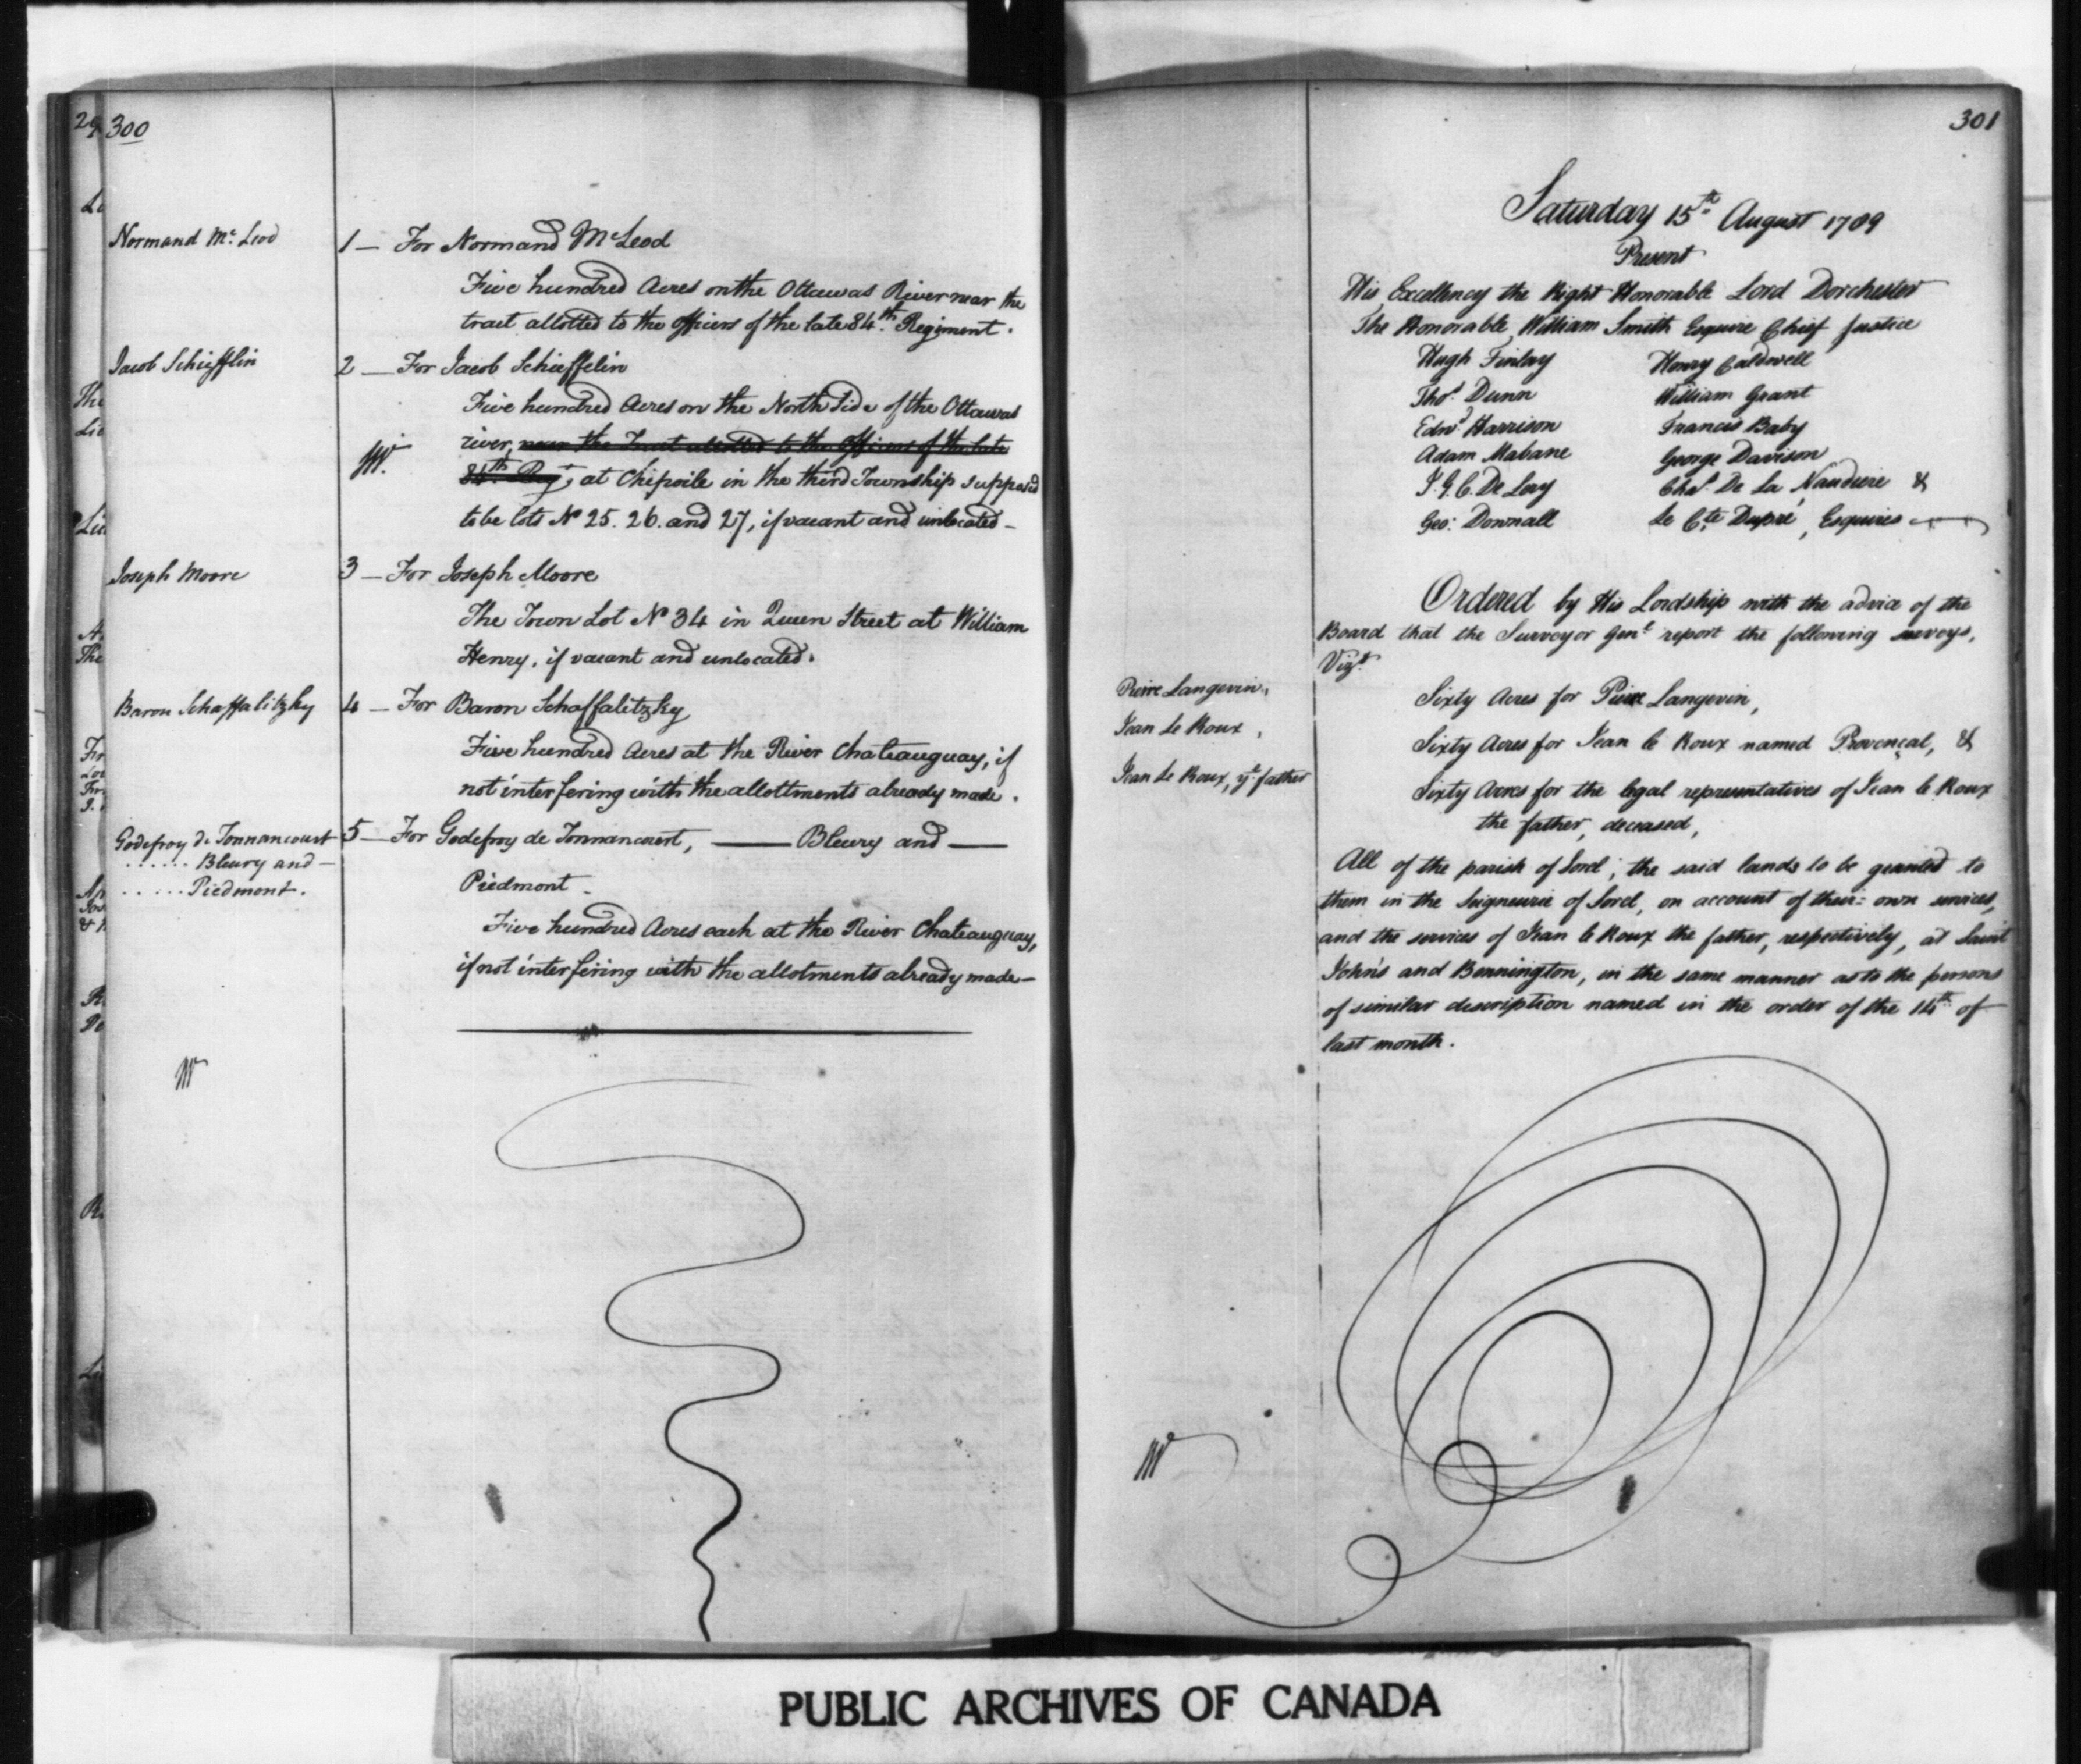 300
Normand Mc Leod
1 — For Normand McLeod
Five hundred Acres on the Ottawas River near the
tract allotted to the officers of the late 84th Regiment.
Jacob Schiefflin
2 — For Jacob Schieffelin
Five hundred Acres on the North Side of the Ottawas
river, near the Tract allotted to the officers of the late
W.
84th Regt, at Chipoile in the third Township supposed
to be lots No 25. 26. and 27, if vacant and unlocated —
Joseph Moore
3 — For Joseph Moore
The Town Lot No 34 in Queen Street at William
Henry, if vacant and unlocated.
Baron Schaffalitzky
4 — For Baron Schaffalitzky
Five hundred Acres at the River Chateauguay, if
not interfering with the allottments already made.
Godefroy de Tonnancourt
...... Bleury and —
..... Piedmont.
5 — For Godefroy de Tonnancourt, —— Bleury and ——
Piedmont —
Five hundred Acres each at the River Chateauguay,
if not interfering with the allotments already made —
W
301
Saturday 15th August 1789
Present
His Excellency the Right Honorable Lord Dorchester
The Honorable William Smith Esquire Chief Justice
Hugh Finlay Henry Caldwell
Thos. Dunn William Grant
Edwd. Harrison Francis Baby
Adam Mabane George Davison
J. G. C. De Lery Chas. De La Naudiere &
Geo: Pownall Le Cte. Dupré, Esquires
Ordered by His Lordship with the advice of the
Board that the Surveyor Genl. report the following surveys,
Vizt.
Pierre Langevin,
Sixty Acres for Pierre Langevin,
Jean Le Roux,
Sixty Acres for Jean le Roux named Provençal, &
Jean Le Roux, ye. father
Sixty Acres for the legal representatives of Jean le Roux
the father, deceased,
All of the parish of Sorel; the said lands to be granted to
them in the Seigneurie of Sorel, on account of their own services,
and the services of Jean le Roux the father, respectively, at Saint
John's and Bennington, in the same manner as to the persons
of similar description named in the order of the 14th of
last month.
W
PUBLIC ARCHIVES OF CANADA